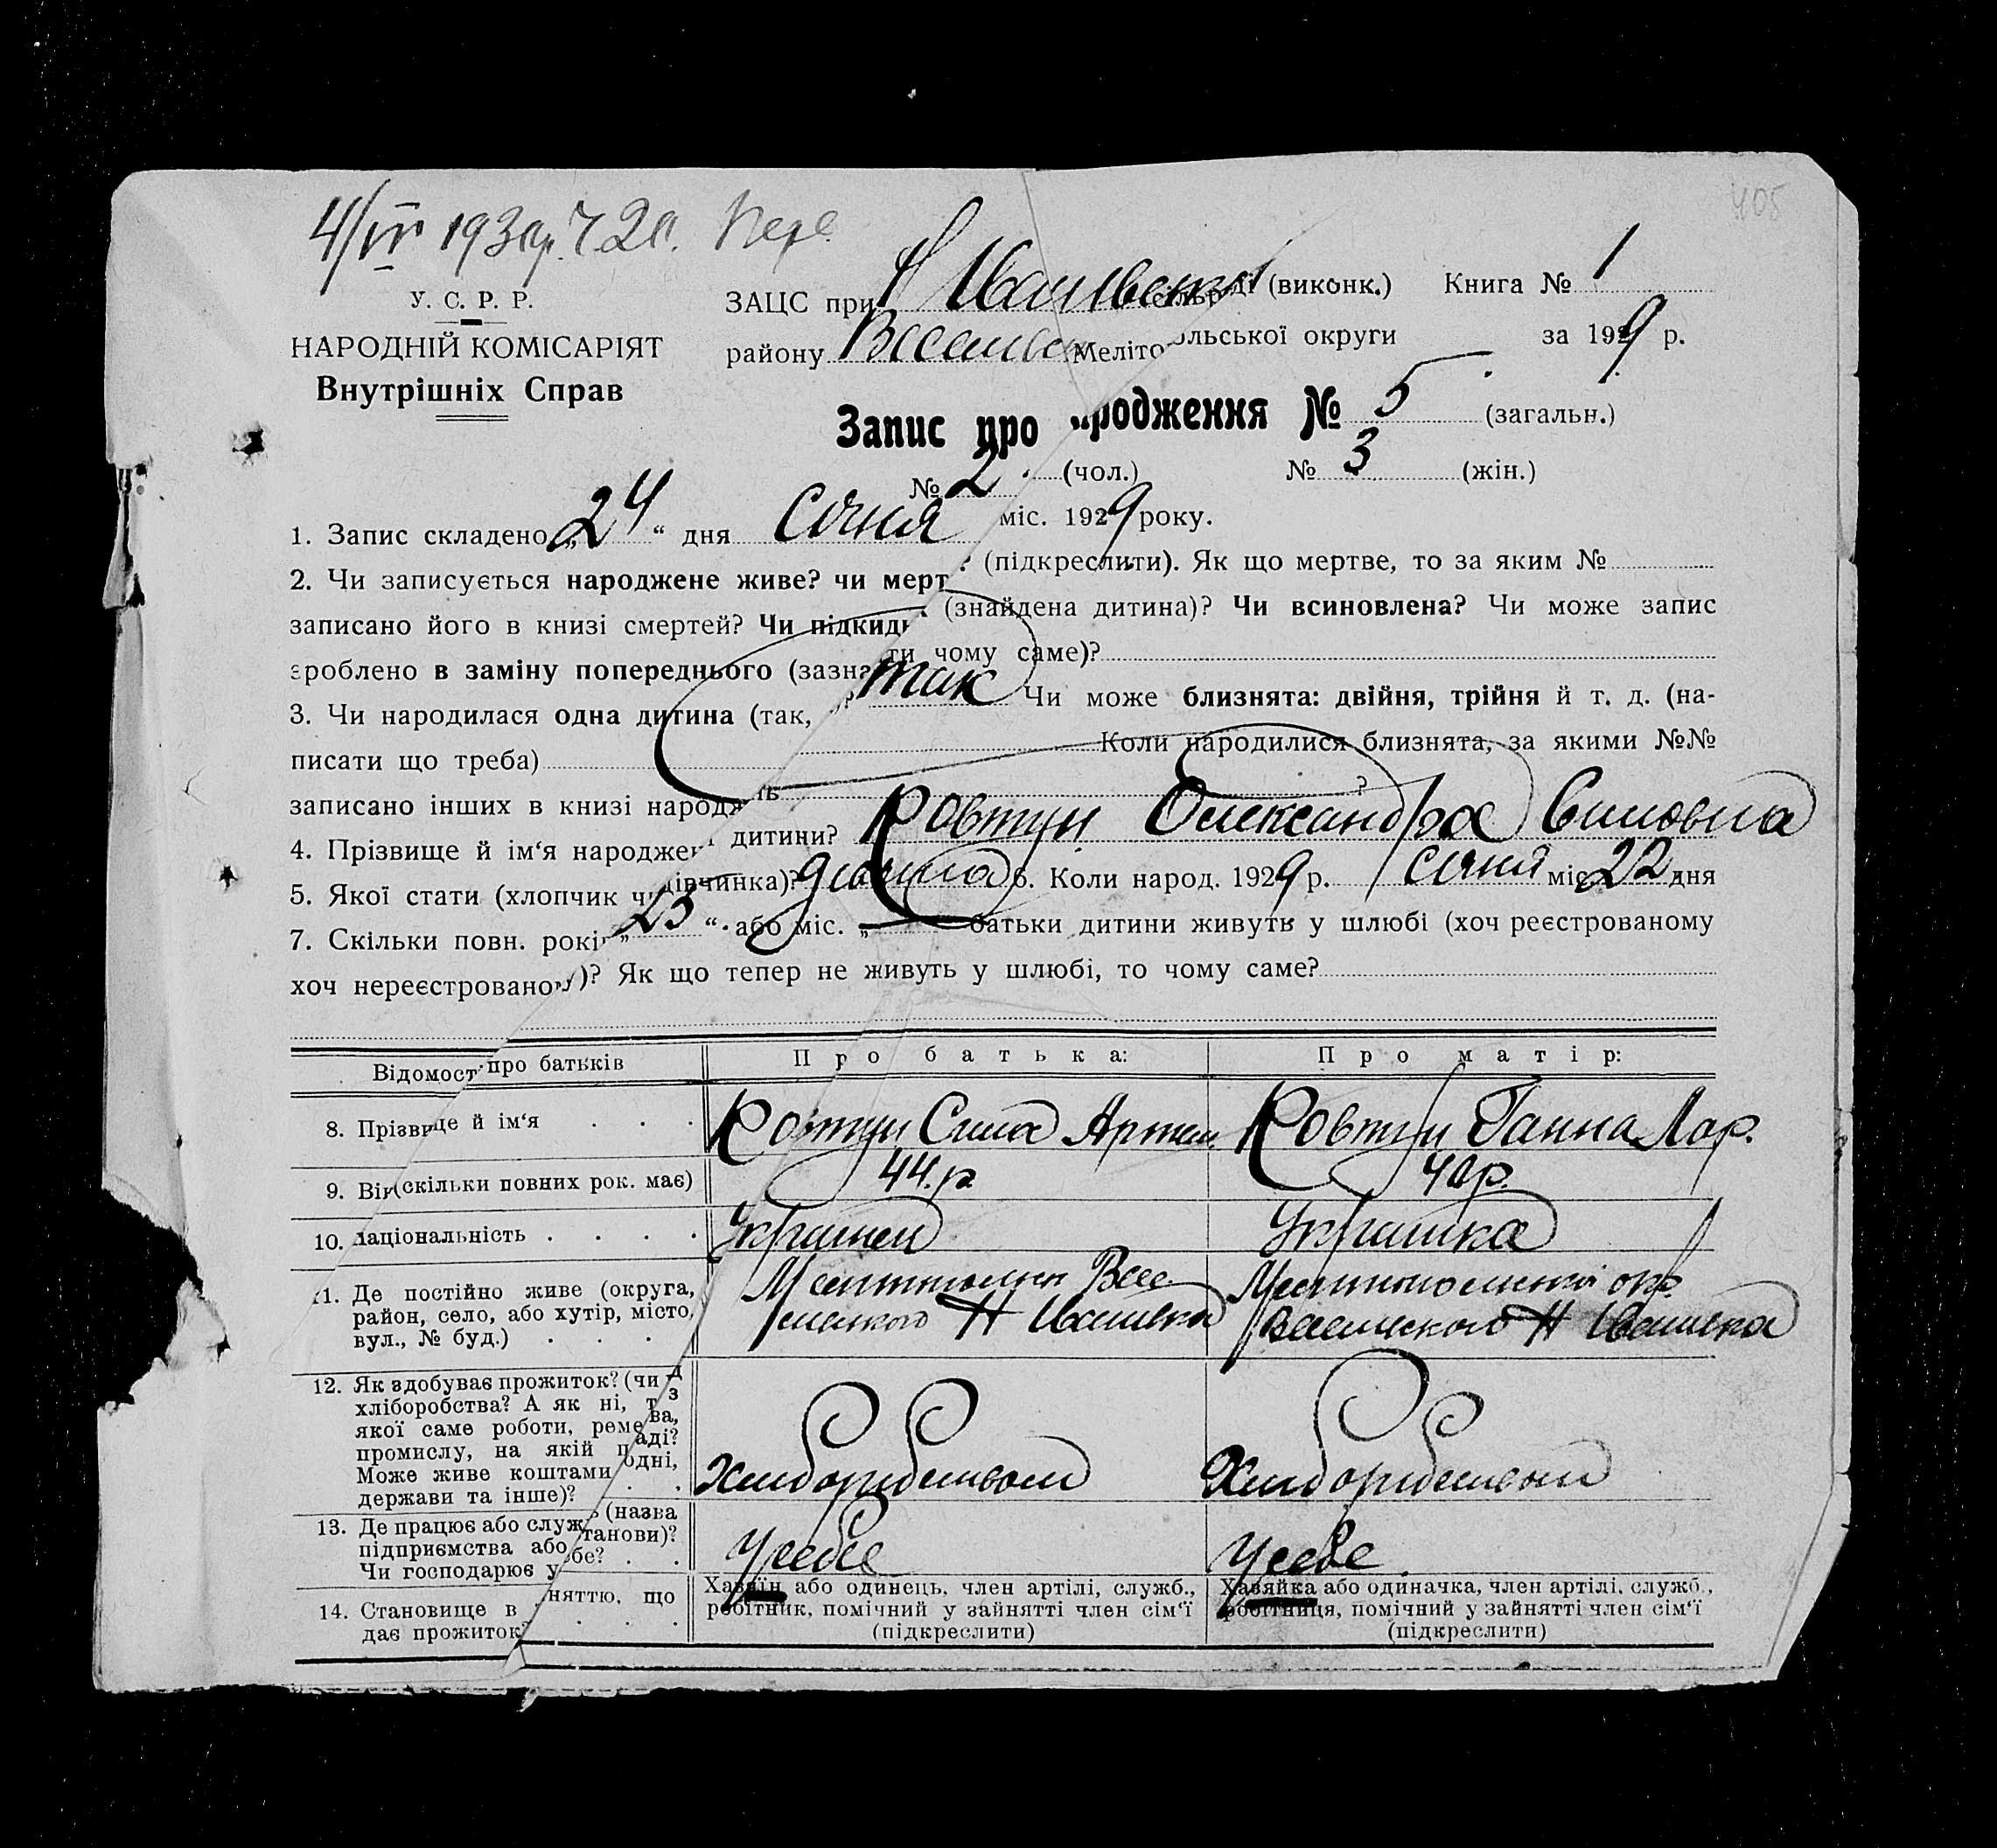 405
4/IV 1930р.
У. С. Р. Р.
НАРОДНІЙ КОМІСАРІЯТ
Внутрішніх Справ
ЗАЦС при Н Іванівськ сільраді (виконк.) Книга № 1
району Весел Мелітопольської округи за 1929 р.
Запис про народження № 5 (загальн.)
№ 2 (чол.) № 3 (жін.)
1. Запис складено „24“ дня Січня міс. 1929 року.
2. Чи записується народжене живе? чи мерт ? (підкреслити). Як що мертве, то за яким №
записано його в книзі смертей? Чи підкидь (знайдена дитина)? Чи всиновлена? Чи може запис
зроблено в заміну попереднього (зазна ти чому саме)?
3. Чи народилася одна дитина (так, ? так Чи може близнята: двійня, трійня й т. д. (на-
писати що треба) Коли народилися близнята, за якими №№
записано інших в книзі народж нь ?
4. Прізвище й ім‘я народжен ї дитини? Ковтун Олександра Силовна
5. Якої стати (хлопчик чи дівчинка)? дівчина 6. Коли народ. 1929 р. Січня міс 22 дня
7. Скільки повн. рокі „23“ або міс. „ батьки дитини живуть у шлюбі (хоч реєстрованому
хоч нереєстровано у)? Як що тепер не живуть у шлюбі, то чому саме?
Відомост про батьків Про батька: Про матір:
8. Прізвище й ім‘я Ковтун Сила Артем Ковтун Ганна Лар.
9. Вік (скільки повних рок. має) 44.р. 42р.
10. Національність Українец Українка
11. Де постійно живе (округа,
район, село, або хутір, місто,
вул., № буд.)
Мелітополь Весе
лівського Н Іванівка
Мелітопольської окр.
Веселівського Н Іванівка
12. Як здобуває прожиток? (чи з
хліборобства? А як ні, т з
якої саме роботи, реме ва,
промислу, на якій п аді?
Може живе коштами одні,
держави та інше)?
Хліборобством Хліборобством
13. Де працює або служ (назва
підприємства або станови)?
Чи господарює у себе?
У себе У себе.
14. Становище в няттю, що
дає прожиток?
Хазяїн або одинець, член артілі, служб.,
робітник, помічний у зайнятті член сім‘ї
(підкреслити)
Хазяйка або одиначка, член артілі, служб.,
робітниця, помічний у зайнятті член сім‘ї
(підкреслити)